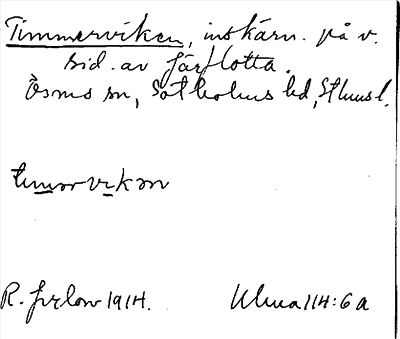 Timmerviken, inskärn. på v.
sid. av Järflotta.
Ösmo sn, Sotholms hd, Sthms l.
timərvikən
R. Jirlow 1914. Ulma 114:6 a